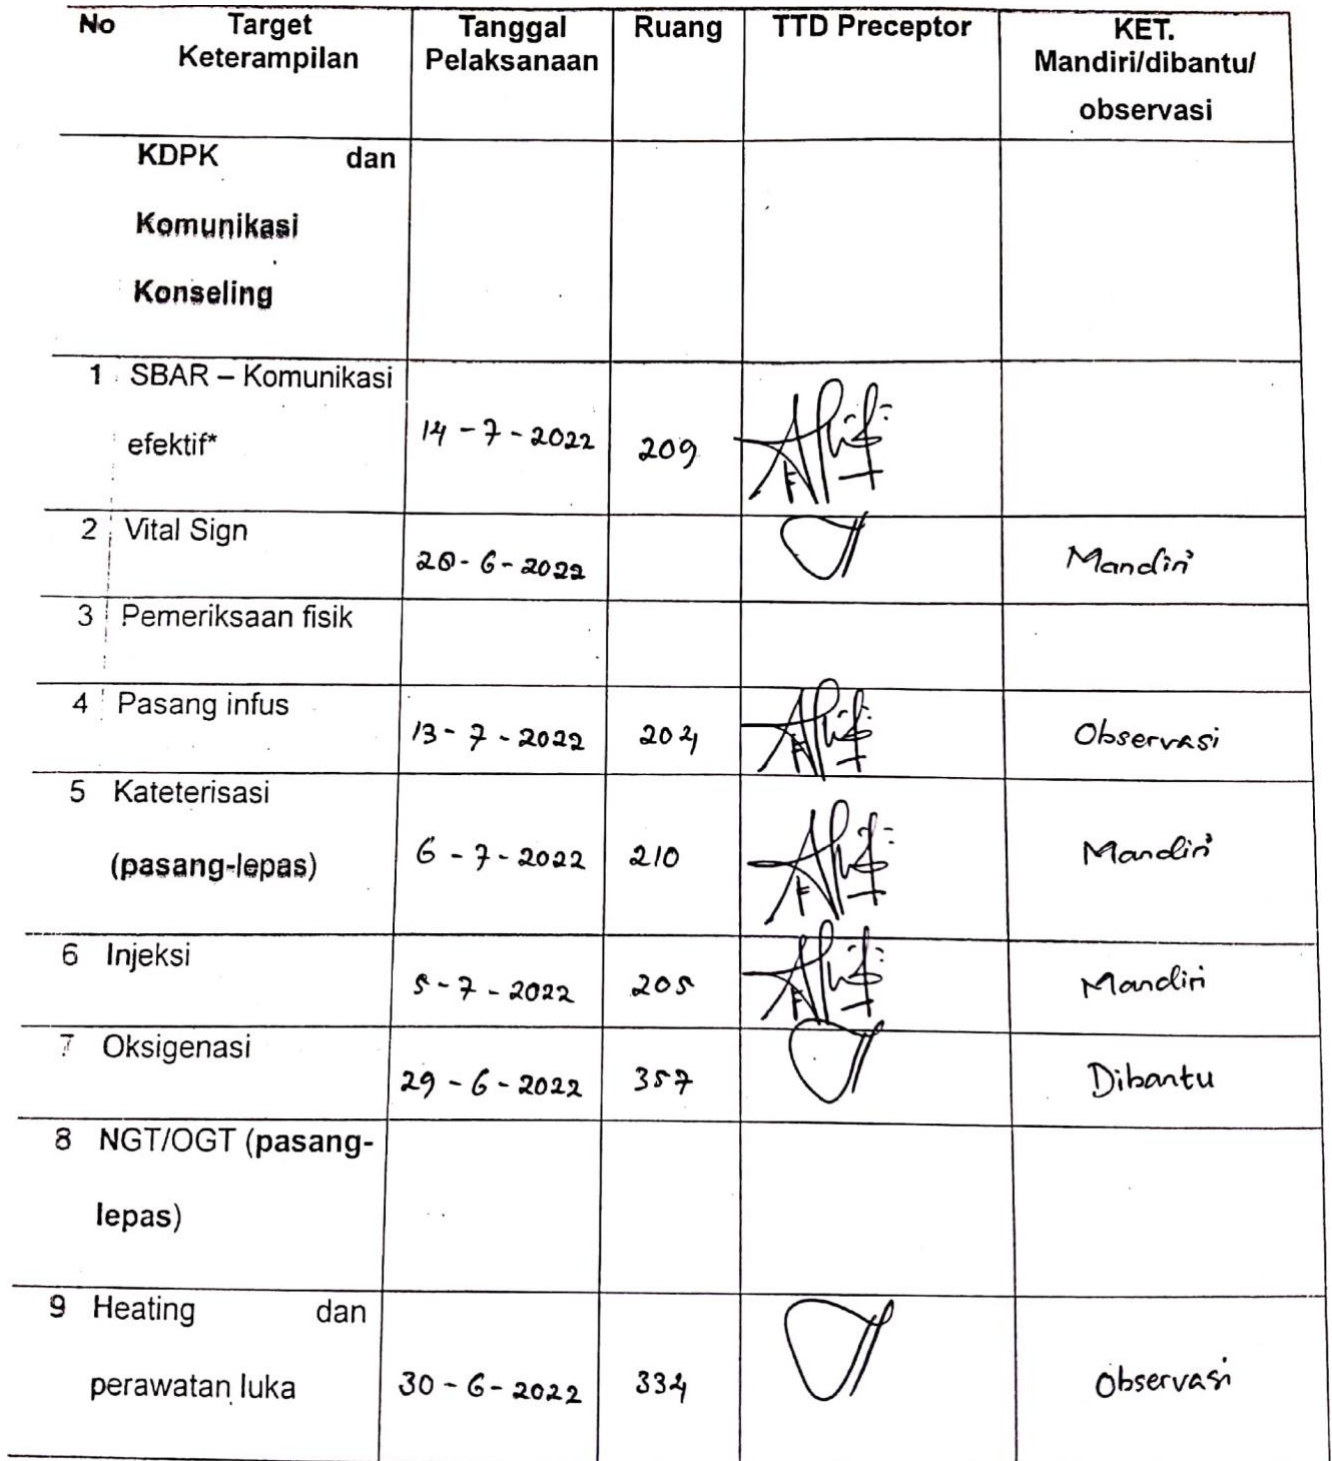 No Target Keterampilan Tanggal Pelaksanaan Ruang TTD Preceptor KET. Mandiri/dibantu/ observasi
KDPK dan
Komunikasi
Konseling
1 SBAR – Komunikasi
efektif* 14 - 7 - 2022 209
2 Vital Sign
- 6 - 2022 Mandiri
3 Pemeriksaan fisik
4 Pasang infus
13 - 7 - 2022 204 Observasi
5 Kateterisasi
(pasang-lepas) 6 - 7 - 2022 210 Mandiri
6 Injeksi
5 - 7 - 2022 205 Mandiri
7 Oksigenasi
29 - 6 - 2022 357 Dibantu
8 NGT/OGT (pasang-
lepas)
9 Heating dan
perawatan luka 30 - 6 - 2022 334 Observasi